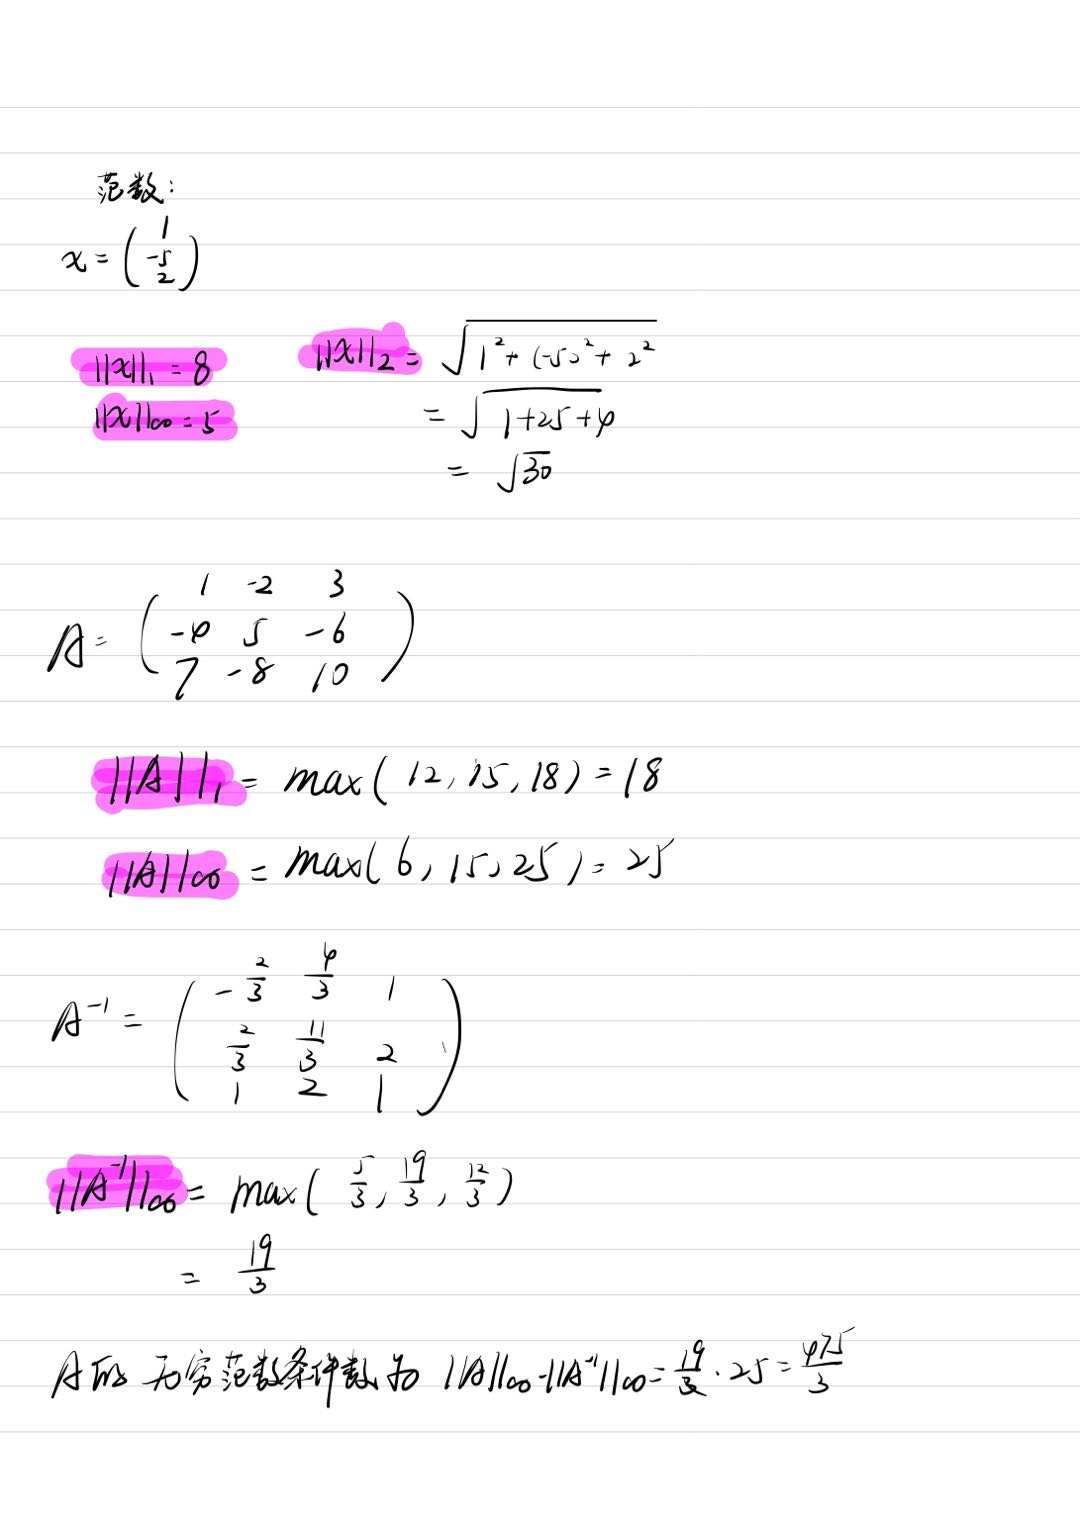 范数:
x = ( 1 -5 2 )
||x||₁ = 8
||x||∞ = 5
||x||₂ = √(1² + (-5)² + 2²)
= √(1+25+4)
= √30
A = ( 1 -2 3
-4 5 -6
7 -8 10 )
||A||₁ = max( 12, 15, 18) = 18
||A||∞ = max( 6, 15, 25 ) = 25
A⁻¹ = ( -2/3 4/3 1
2/3 11/3 2
1 2 1 )
||A⁻¹||∞ = max( 5/3, 19/3, 12/3 )
= 19/3
A的 无穷范数条件数为 ||A||∞·||A⁻¹||∞ = 19/3 · 25 = 475/3